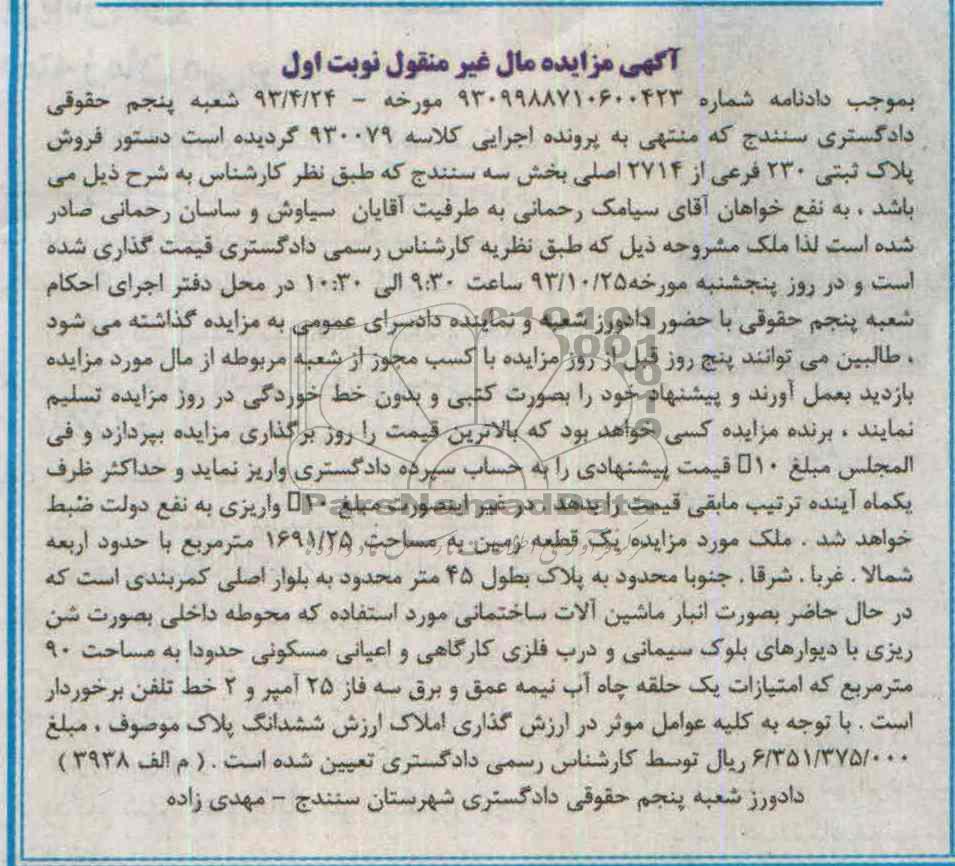 آگهی مزایده مال غیر منقول نوبت اول
بموجب دادنامه شماره ۹۳۰۹۹۸۸۷۱۰۶۰۰۴۲۳ مورخه - ۹۳/۴/۲۴ شعبه پنجم حقوقی
دادگستری سنندج که منتهی به پرونده اجرایی کلاسه ۹۳۰۰۷۹ گردیده است دستور فروش
پلاک ثبتی ۲۳۰ فرعی از ۲۷۱۴ اصلی بخش سه سنندج که طبق نظر کارشناس به شرح ذیل می
باشد ، به نفع خواهان آقای سیامک رحمانی به طرفیت آقایان سیاوش و ساسان رحمانی صادر
شده است لذا ملک مشروحه ذیل که طبق نظریه کارشناس رسمی دادگستری قیمت گذاری شده
است و در روز پنجشنبه مورخه۹۳/۱۰/۲۵ ساعت ۹:۳۰ الی ۱۰:۳۰ در محل دفتر اجرای احکام
شعبه پنجم حقوقی با حضور دادورز شعبه و نماینده دادسرای عمومی به مزایده گذاشته می شود
، طالبین می توانند پنج روز قبل از روز مزایده با کسب مجوز از شعبه مربوطه از مال مورد مزایده
بازدید بعمل آورند و پیشنهاد خود را بصورت کتبی و بدون خط خوردگی در روز مزایده تسلیم
نمایند ، برنده مزایده کسی خواهد بود که بالاترین قیمت را روز برگذاری مزایده بپردازد و فی
المجلس مبلغ ۱۰□ قیمت پیشنهادی را به حساب سپرده دادگستری واریز نماید و حداکثر ظرف
یکماه آینده ترتیب مابقی قیمت را بدهد . در غیر اینصورت مبلغ ۱۰□ واریزی به نفع دولت ضبط
خواهد شد . ملک مورد مزایده یک قطعه زمین به مساحت ۱۶۹۱/۲۵ مترمربع با حدود اربعه
شمالا . غربا . شرقا . جنوبا محدود به پلاک بطول ۴۵ متر محدود به بلوار اصلی کمربندی است که
در حال حاضر بصورت انبار ماشین آلات ساختمانی مورد استفاده که محوطه داخلی بصورت شن
ریزی با دیوارهای بلوک سیمانی و درب فلزی کارگاهی و اعیانی مسکونی حدودا به مساحت ۹۰
مترمربع که امتیازات یک حلقه چاه آب نیمه عمق و برق سه فاز ۲۵ آمپر و ۲ خط تلفن برخوردار
است . با توجه به کلیه عوامل موثر در ارزش گذاری املاک ارزش ششدانگ پلاک موصوف ، مبلغ
۶/۳۵۱/۳۷۵/۰۰۰ ریال توسط کارشناس رسمی دادگستری تعیین شده است . ( م الف ۳۹۳۸ )
دادورز شعبه پنجم حقوقی دادگستری شهرستان سنندج - مهدی زاده
ParsNamadData